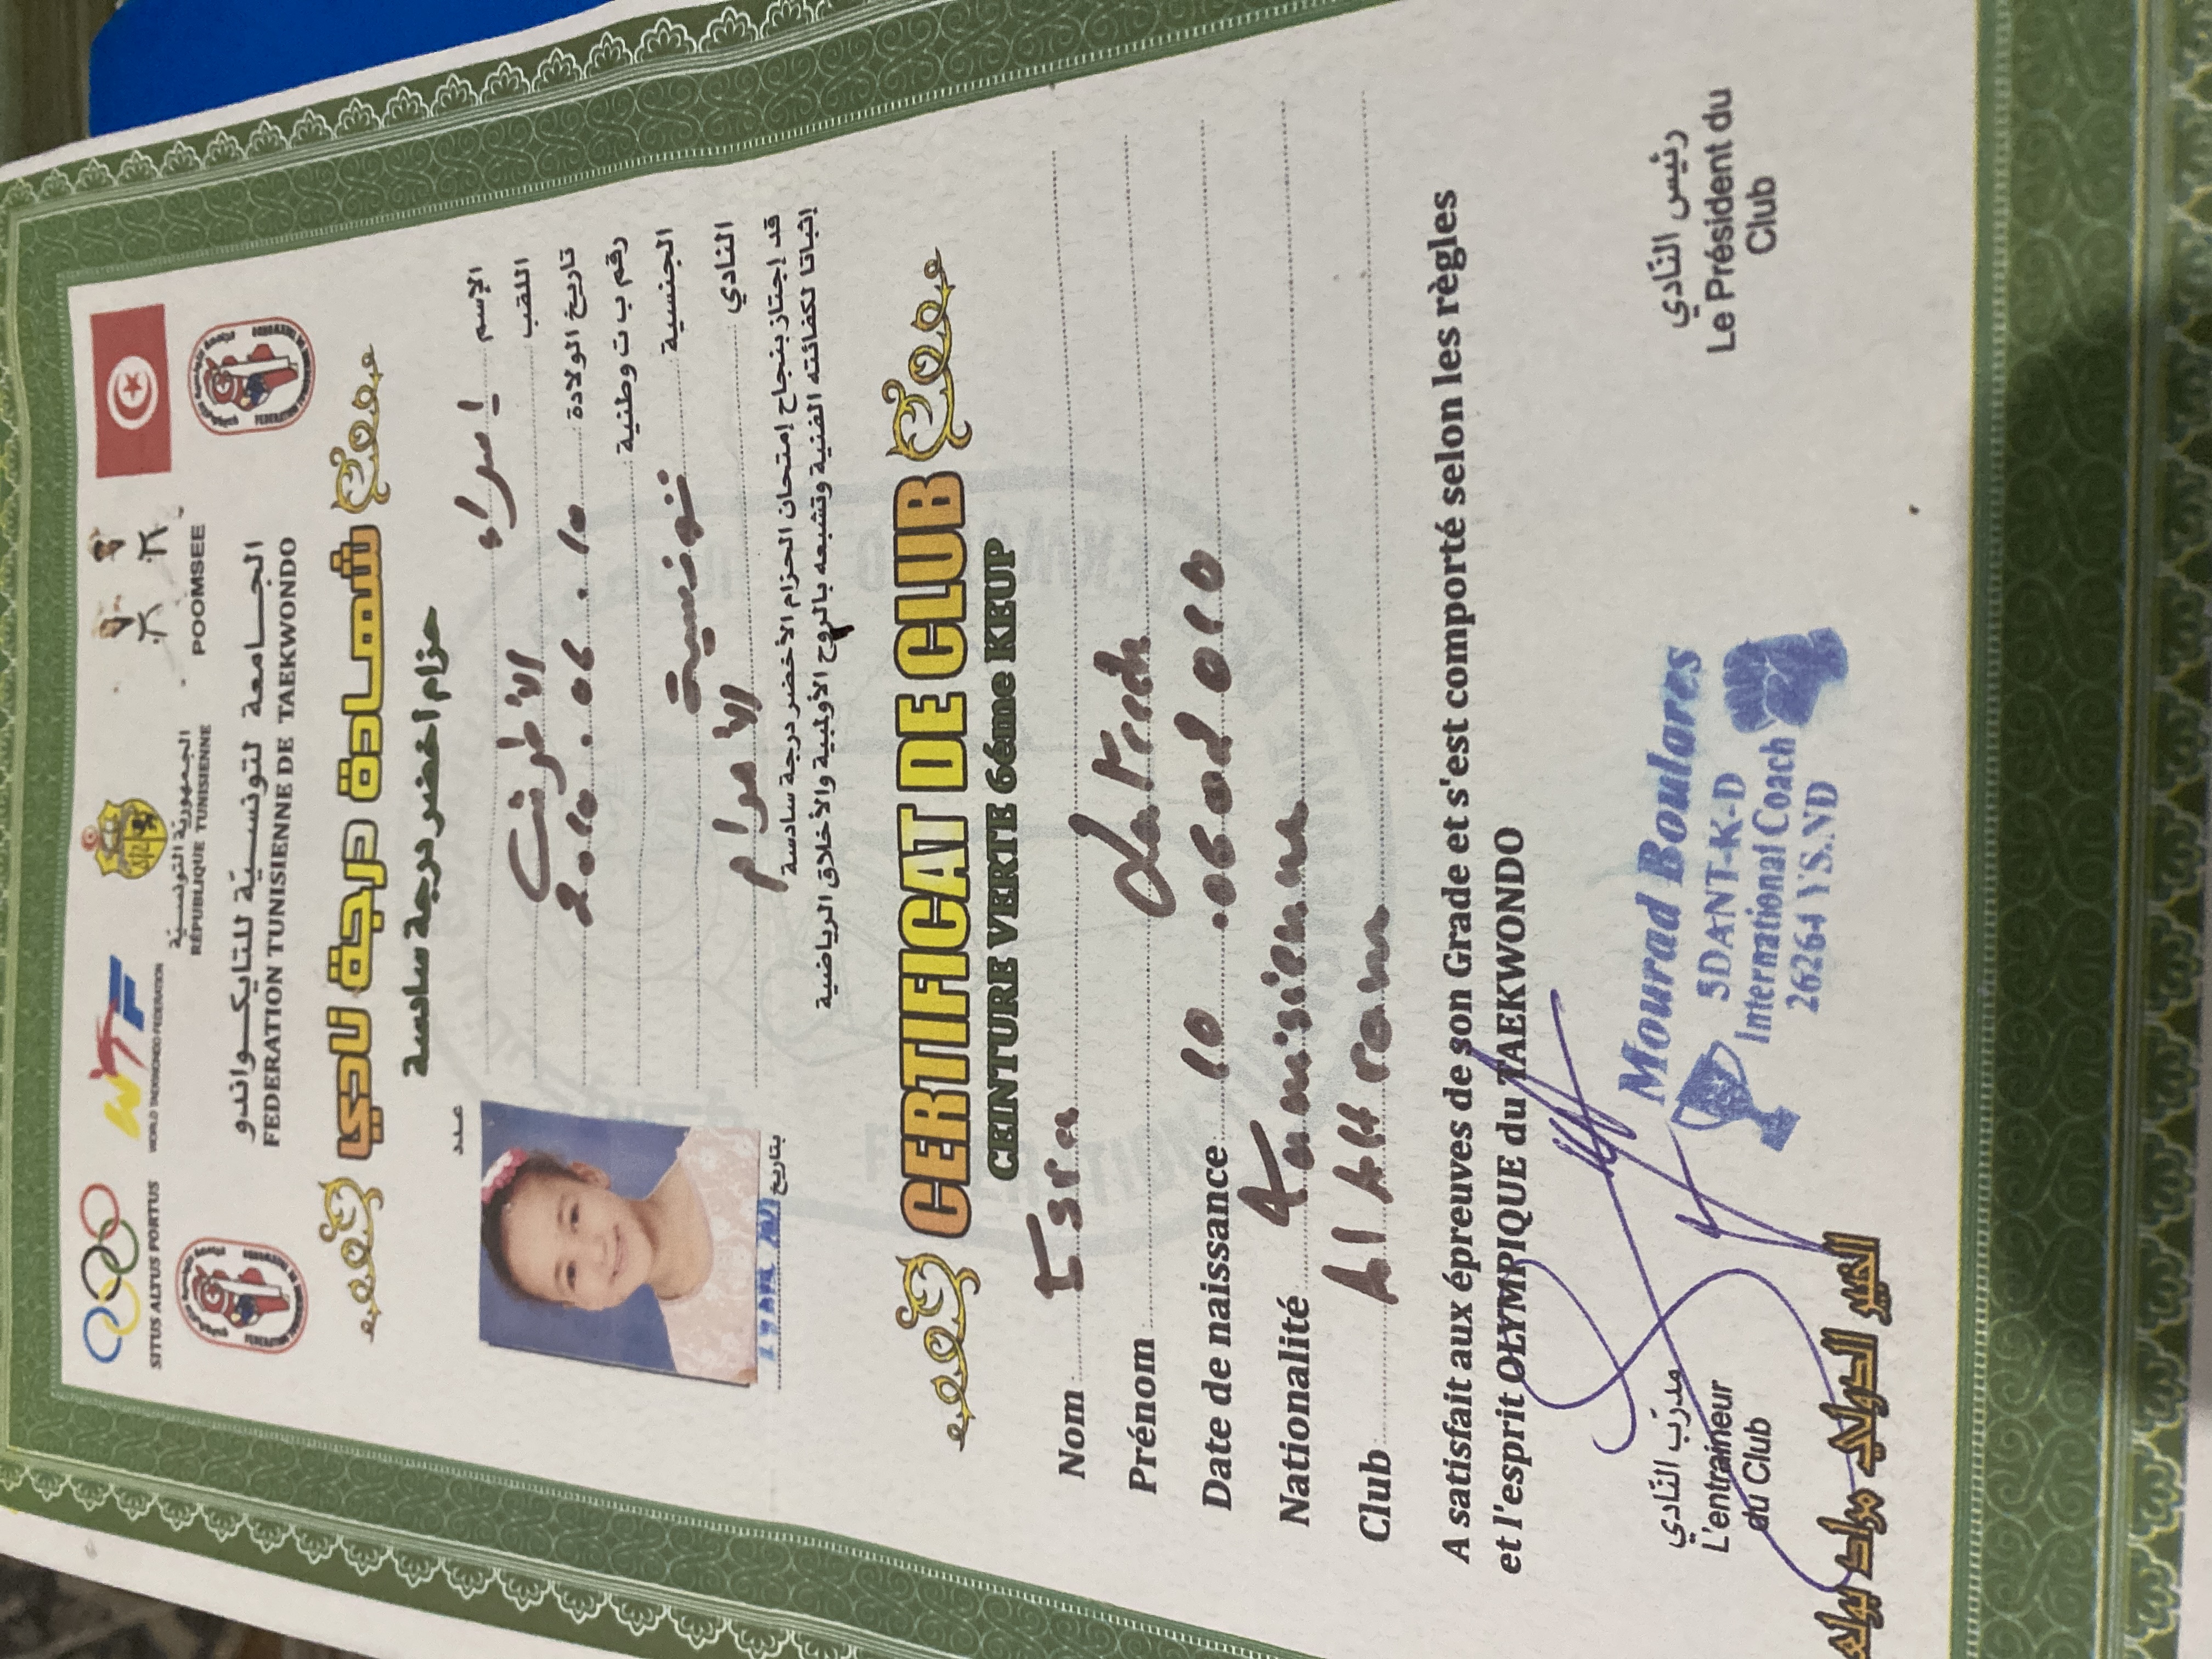 SITUS ALTUS FORTUS
WORLD TAEKWONDO FEDERATION
الجمهورية التونسية
RÉPUBLIQUE TUNISIENNE
POOMSEE
الجـــامعة لتونســيّة للتايكــوانـدو
FEDERATION TUNISIENNE DE TAEKWONDO
شهــادة درجة نادي
حزام أخضر درجة سادسة
عدد
الإسم اسراء
اللقب الأطرش
تاريخ الولادة 10.06.2010
رقم ب ت وطنية
الجنسية تونسية
النادي
قد إجتاز بنجاح إمتحان الحزام الأخضر درجة سادسة
إثباتا لكفائته الفنية وتشبعه بالروح الأولمبية والأخلاق الرياضية
بتاريخ
CERTIFICAT DE CLUB
CEINTURE VERTE 6éme KEUP
Nom Esra
Prénom
Date de naissance 10
Nationalité
Club
A satisfait aux épreuves de son Grade et s'est comporté selon les règles
et l'esprit OLYMPIQUE du TAEKWONDO
مدرّب النّادي
L'entraineur
du Club
Mourad Boulares
5DANT-K-D
International Coach
رئيس النّادي
Le Président du
Club
الخبير الدولي مراد